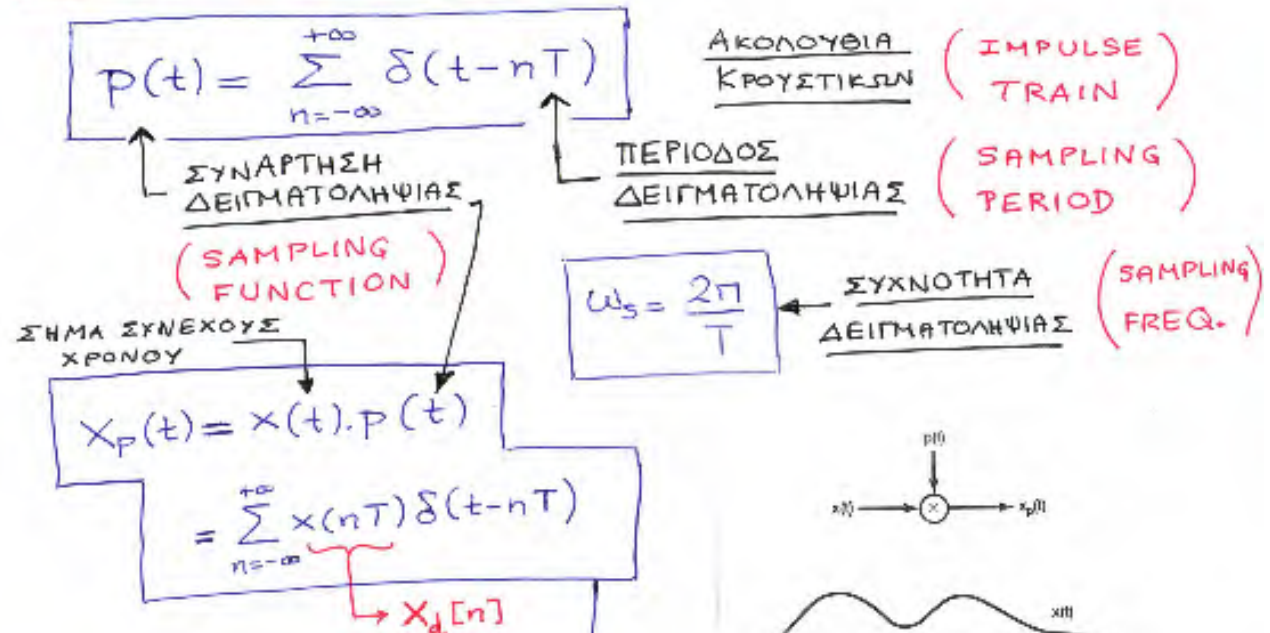 p(t) = Σ_{n=-∞}^{+∞} δ(t-nT)
ΑΚΟΛΟΥΘΙΑ
ΚΡΟΥΣΤΙΚΩΝ
(IMPULSE
TRAIN)
ΣΥΝΑΡΤΗΣΗ
ΔΕΙΓΜΑΤΟΛΗΨΙΑΣ
(SAMPLING
FUNCTION)
ΠΕΡΙΟΔΟΣ
ΔΕΙΓΜΑΤΟΛΗΨΙΑΣ
(SAMPLING
PERIOD)
ω_s = 2π/T
ΣΥΧΝΟΤΗΤΑ
ΔΕΙΓΜΑΤΟΛΗΨΙΑΣ
(SAMPLING
FREQ.)
ΣΗΜΑ ΣΥΝΕΧΟΥΣ
ΧΡΟΝΟΥ
x_p(t) = x(t).p(t)
= Σ_{n=-∞}^{+∞} x(nT) δ(t-nT)
x_d[n]
p(t)
x(t)
×
x_p(t)
x(t)